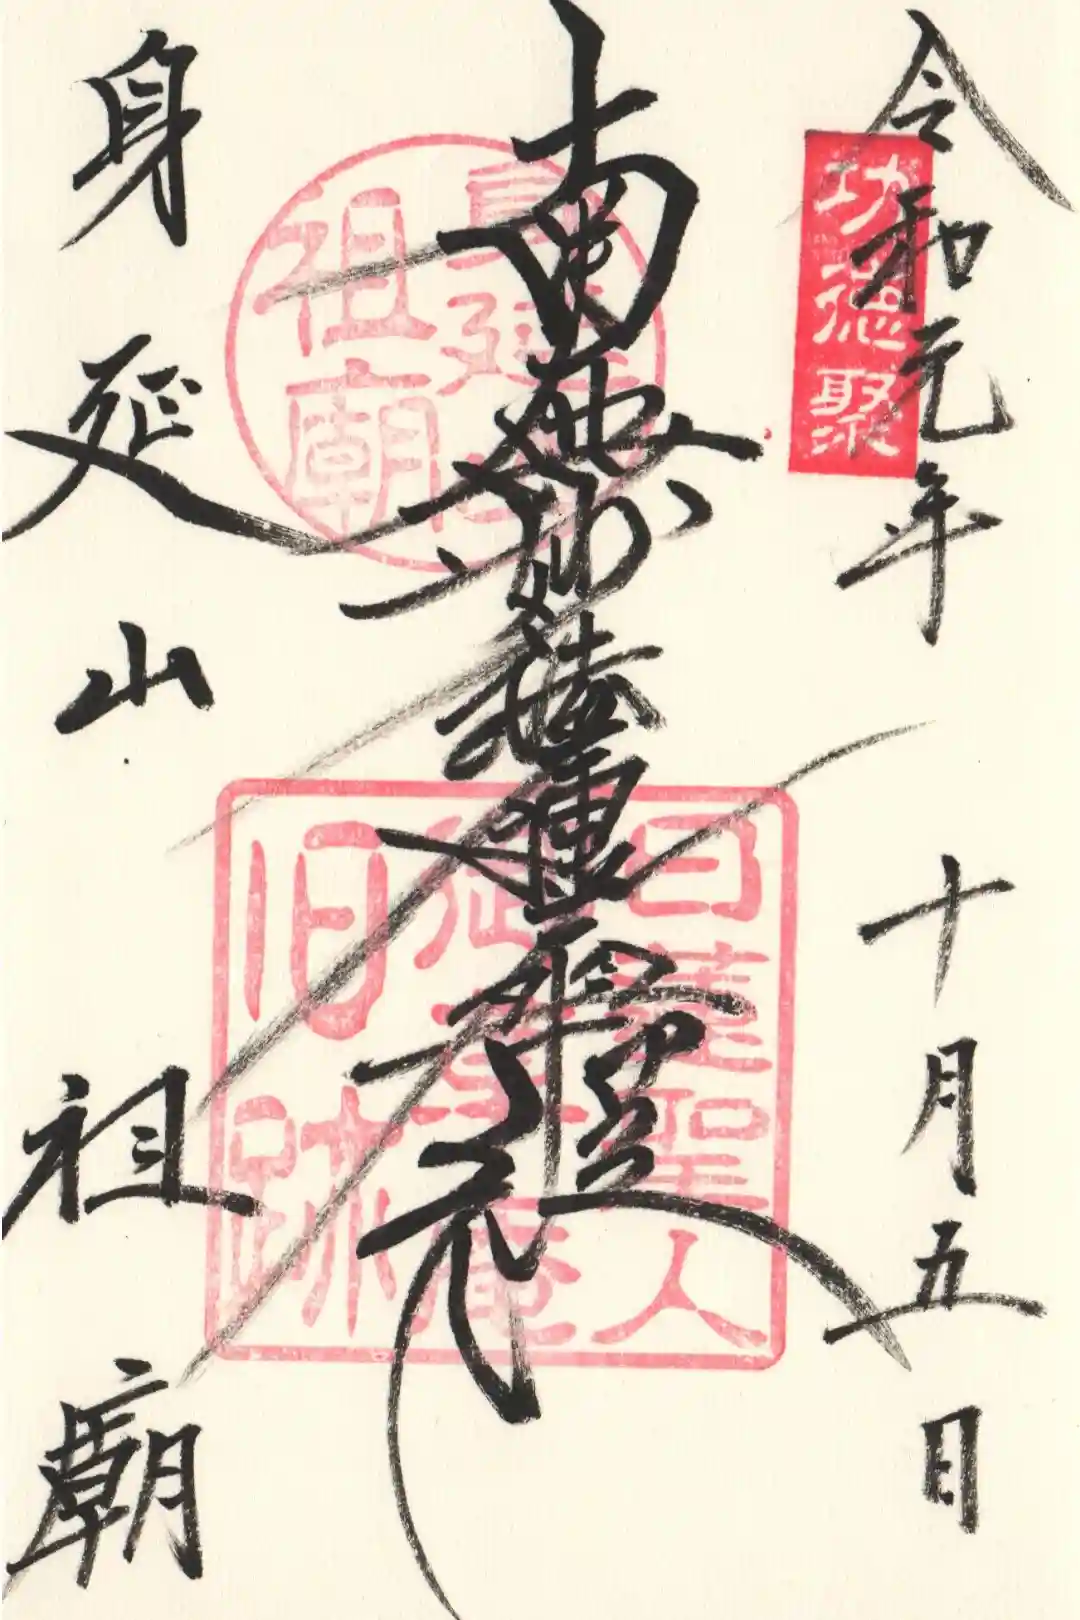 令和元年 十月五日
功徳聚
南無妙法蓮華経
日蓮聖人
御草庵
旧跡
身延山
祖廟
身延山 祖廟